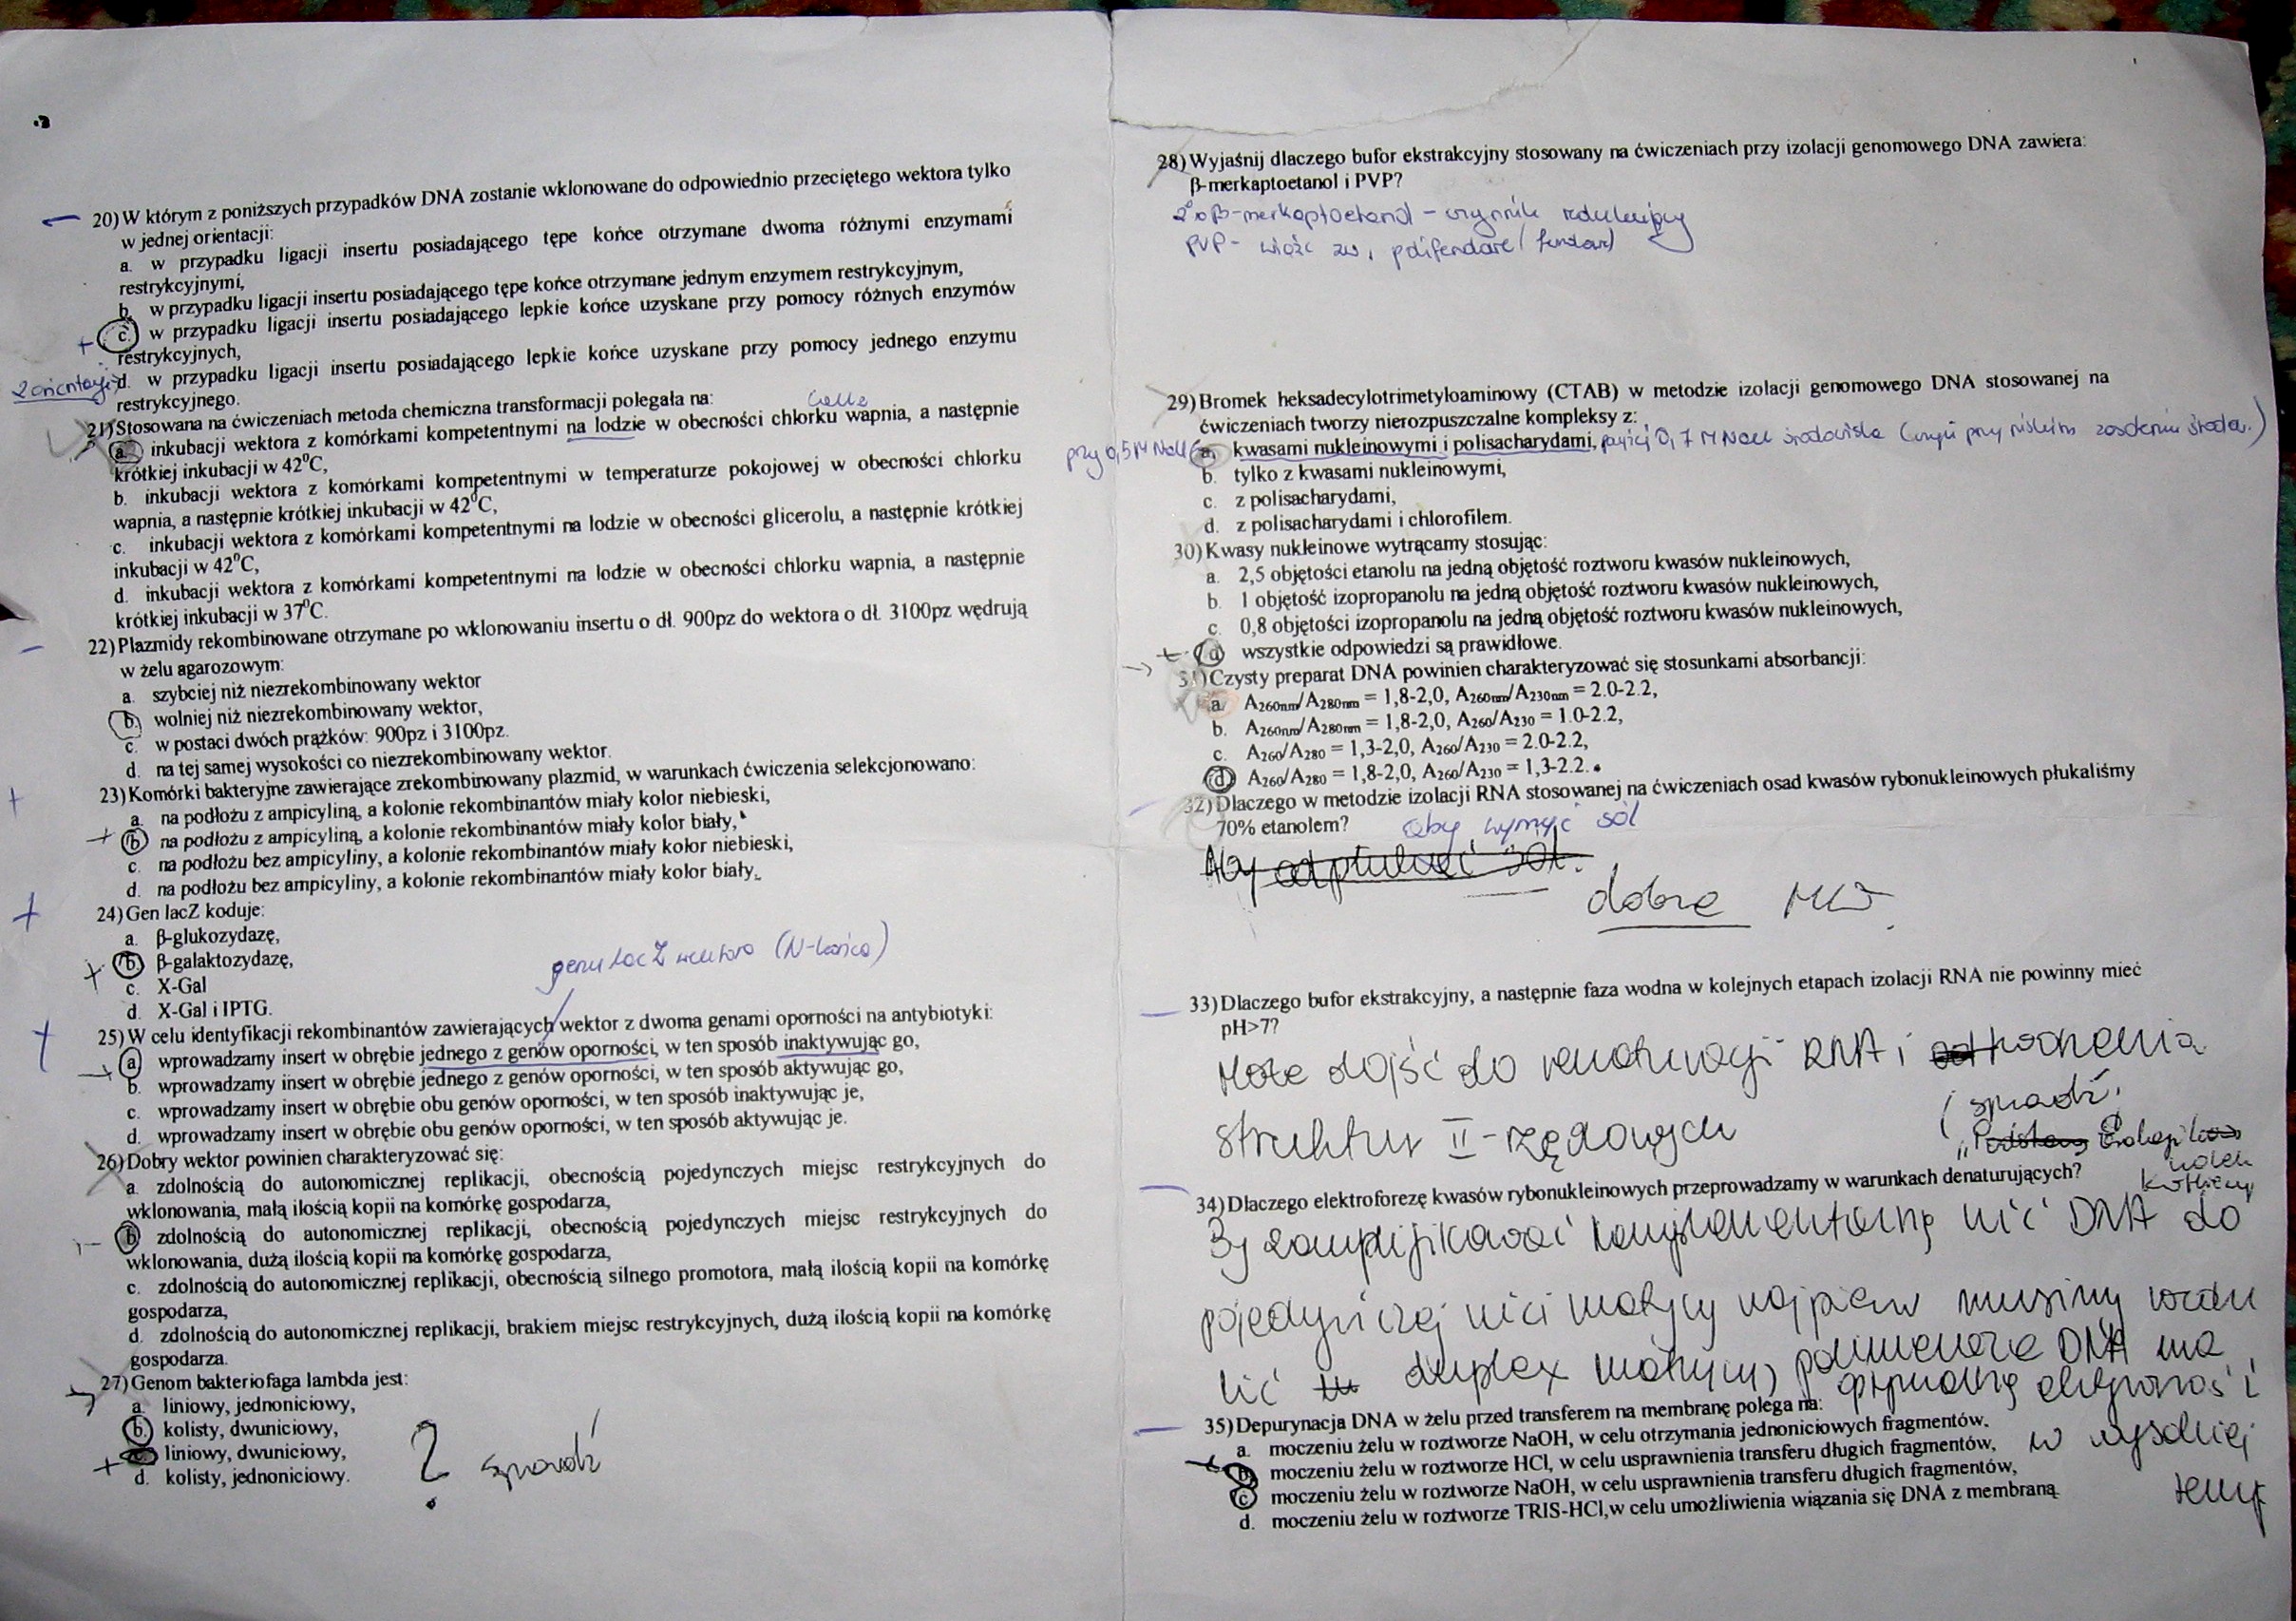 20) W którym z poniższych przypadków DNA zostanie wklonowane do odpowiednio przeciętego wektora tylko
w jednej orientacji:
a. w przypadku ligacji insertu posiadającego tępe końce otrzymane dwoma różnymi enzymami
restrykcyjnymi,
b. w przypadku ligacji insertu posiadającego tępe końce otrzymane jednym enzymem restrykcyjnym,
+ c. w przypadku ligacji insertu posiadającego lepkie końce uzyskane przy pomocy różnych enzymów
restrykcyjnych,
2 orientacje d. w przypadku ligacji insertu posiadającego lepkie końce uzyskane przy pomocy jednego enzymu
restrykcyjnego.
21) Stosowana na ćwiczeniach metoda chemiczna transformacji polegała na:
CaCl2
a. inkubacji wektora z komórkami kompetentnymi na lodzie w obecności chlorku wapnia, a następnie
krótkiej inkubacji w 42⁰C,
b. inkubacji wektora z komórkami kompetentnymi w temperaturze pokojowej w obecności chlorku
wapnia, a następnie krótkiej inkubacji w 42⁰C,
c. inkubacji wektora z komórkami kompetentnymi na lodzie w obecności glicerolu, a następnie krótkiej
inkubacji w 42⁰C,
d. inkubacji wektora z komórkami kompetentnymi na lodzie w obecności chlorku wapnia, a następnie
krótkiej inkubacji w 37⁰C.
22) Plazmidy rekombinowane otrzymane po wklonowaniu insertu o dł. 900pz do wektora o dł. 3100pz wędrują
w żelu agarozowym:
a. szybciej niż niezrekombinowany wektor
b. wolniej niż niezrekombinowany wektor,
c. w postaci dwóch prążków: 900pz i 3100pz.
d. na tej samej wysokości co niezrekombinowany wektor.
+ 23) Komórki bakteryjne zawierające zrekombinowany plazmid, w warunkach ćwiczenia selekcjonowano:
a. na podłożu z ampicyliną, a kolonie rekombinantów miały kolor niebieski,
+ b. na podłożu z ampicyliną, a kolonie rekombinantów miały kolor biały,
c. na podłożu bez ampicyliny, a kolonie rekombinantów miały kolor niebieski,
d. na podłożu bez ampicyliny, a kolonie rekombinantów miały kolor biały.
+ 24) Gen lacZ koduje:
a. β-glukozydazę,
+ b. β-galaktozydazę,
c. X-Gal
d. X-Gal i IPTG.
genu lac Z wektora (N-końca)
+ 25) W celu identyfikacji rekombinantów zawierających wektor z dwoma genami oporności na antybiotyki:
a. wprowadzamy insert w obrębie jednego z genów oporności, w ten sposób inaktywując go,
b. wprowadzamy insert w obrębie jednego z genów oporności, w ten sposób aktywując go,
c. wprowadzamy insert w obrębie obu genów oporności, w ten sposób inaktywując je,
d. wprowadzamy insert w obrębie obu genów oporności, w ten sposób aktywując je.
26) Dobry wektor powinien charakteryzować się:
a. zdolnością do autonomicznej replikacji, obecnością pojedynczych miejsc restrykcyjnych do
wklonowania, małą ilością kopii na komórkę gospodarza,
b. zdolnością do autonomicznej replikacji, obecnością pojedynczych miejsc restrykcyjnych do
wklonowania, dużą ilością kopii na komórkę gospodarza,
c. zdolnością do autonomicznej replikacji, obecnością silnego promotora, małą ilością kopii na komórkę
gospodarza,
d. zdolnością do autonomicznej replikacji, brakiem miejsc restrykcyjnych, dużą ilością kopii na komórkę
gospodarza.
27) Genom bakteriofaga lambda jest:
a. liniowy, jednoniciowy,
b. kolisty, dwuniciowy,
+ c. liniowy, dwuniciowy,
d. kolisty, jednoniciowy.
? sprawdź
28) Wyjaśnij dlaczego bufor ekstrakcyjny stosowany na ćwiczeniach przy izolacji genomowego DNA zawiera:
β-merkaptoetanol i PVP?
2% β-merkaptoetanol - czynnik redukujący
PVP - wiąże zw. polifenolowe (fenolowe)
29) Bromek heksadecylotrimetyloaminowy (CTAB) w metodzie izolacji genomowego DNA stosowanej na
ćwiczeniach tworzy nierozpuszczalne kompleksy z:
przy 0,5M NaCl a. kwasami nukleinowymi i polisacharydami, poniżej 0,7 M NaCl środowiska (czyli przy niskim zasoleniu środow.)
b. tylko z kwasami nukleinowymi,
c. z polisacharydami,
d. z polisacharydami i chlorofilem.
30) Kwasy nukleinowe wytrącamy stosując:
a. 2,5 objętości etanolu na jedną objętość roztworu kwasów nukleinowych,
b. 1 objętość izopropanolu na jedną objętość roztworu kwasów nukleinowych,
c. 0,8 objętości izopropanolu na jedną objętość roztworu kwasów nukleinowych,
+ d. wszystkie odpowiedzi są prawidłowe.
31) Czysty preparat DNA powinien charakteryzować się stosunkami absorbancji:
a. A260nm/A280nm = 1,8-2,0, A260nm/A230nm = 2.0-2.2,
b. A260nm/A280nm = 1,8-2,0, A260/A230 = 1.0-2.2,
c. A260/A280 = 1,3-2,0, A260/A230 = 2.0-2.2,
d. A260/A280 = 1,8-2,0, A260/A230 = 1,3-2.2.
32) Dlaczego w metodzie izolacji RNA stosowanej na ćwiczeniach osad kwasów rybonukleinowych płukaliśmy
70% etanolem? aby wymyć sól
Aby odpłukać sól.
dobrze
33) Dlaczego bufor ekstrakcyjny, a następnie faza wodna w kolejnych etapach izolacji RNA nie powinny mieć
pH>7?
Może dojść do renaturacji RNA i odtworzenia
struktur II-rzędowych
sprawdź.
34) Dlaczego elektroforezę kwasów rybonukleinowych przeprowadzamy w warunkach denaturujących?
By zamplifikować komplementarną nić DNA do
pojedynczej nici matrycy najpierw musimy rozdzielić duplex matrycy, polimeraza DNA ma
optymalną aktywność
w wysokiej
temp
35) Depurynacja DNA w żelu przed transferem na membranę polega na:
a. moczeniu żelu w roztworze NaOH, w celu otrzymania jednoniciowych fragmentów.
b. moczeniu żelu w roztworze HCl, w celu usprawnienia transferu długich fragmentów,
c. moczeniu żelu w roztworze NaOH, w celu usprawnienia transferu długich fragmentów,
d. moczeniu żelu w roztworze TRIS-HCl,w celu umożliwienia wiązania się DNA z membraną